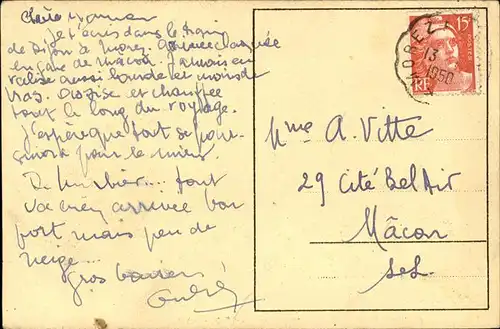 Chère Maman
Je t'écris dans le train
de Dijon à Morez. Journée
en gare de Mâcon. J'avais en
valise aussi lourde et moins de
bras. Assise et chauffée
tout le long du voyage.
J'espère que tout se pour-
suivra pour le mieux.
tout
va bien arrivée bon
port mais peu de
neige...
Gros baisers
André
Mme A. Vitte
29 Cité Bel Air
Mâcon
S et L.
15F
POSTES
RF
MOREZ
13
1950